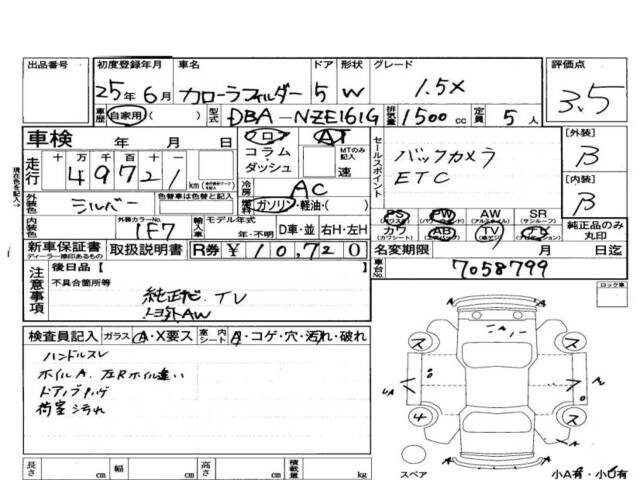 出品番号 初度登録年月 車名 ドア 形状 グレード 評価点
25年6月 カローラフィルダー 5 W 1.5X 3.5
車歴 自家用 ( ) 型式 DBA-NZE161G 排気量 1500 cc 定員 5 人
車検 年 月 日 フロア AT [外装] B
コラム・ダッシュ MTのみ記入 速
走行 十 万 千 百 十 一
49721 km
セールスポイント バックカメラ
ETC
冷房 AC [内装] B
外装色 シルバー 色替車は色替と記入 燃料 ガソリン・軽油・( )
PS PW AW SR
内装色 外装カラーNo. 1F7 輸入車 モデル年式 年・不明 D車・並 右H・左H
カワ AB TV ナビ 純正品のみ丸印
新車保証書 取扱説明書 R券 ¥10,720 名変期限 月 日迄
ディーラー捺印あるもの
車台No. 7058799
注意事項 後日品【
不具合箇所等 ロック車
純正ナビ.TV
社外AW
検査員記入 ガラス A・X要ス 室内シート A・コゲ・穴・汚れ・破れ
ハンドルスレ
ホイルA. 左Rホイル違い
荷室汚れ
長さ cm 幅 cm 高さ cm 積載量 kg
スペア 小A有・小U有
現在色を記入→